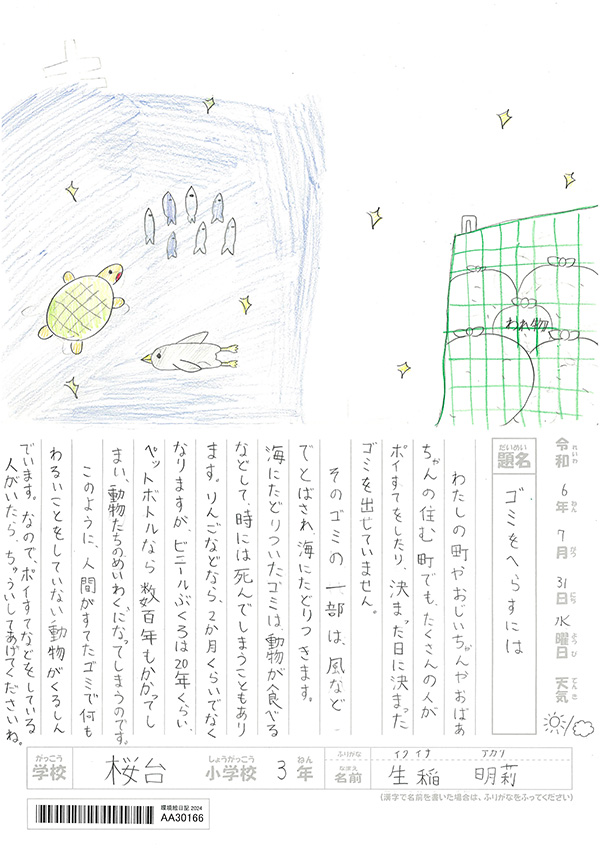 われ物
令和6年7月31日水曜日 天気
れいわ ねん がつ にち ようび てんき
だいめい
題名
ゴミをへらすには
わたしの町やおじいちゃんやおばあ
ちゃんの住む町でも、たくさんの人が
ポイすてをしたり、決まった日に決まった
ゴミを出していません。
そのゴミの一部は、風など
でとばされ、海にたどりつきます。
海にたどりついたゴミは、動物が食べる
などして、時には死んでしまうこともあり
ます。りんごなどなら、2か月くらいでなく
なりますが、ビニールぶくろは20年くらい、
ペットボトルなら数百年もかかってし
まい、動物たちのめいわくになってしまうのです。
このように、人間がすてたゴミで何も
わるいことをしていない動物がくるしん
でいます。なので、ポイすてなどをしている
人がいたら、ちゅういしてあげてくださいね。
がっこう しょうがっこう ねん ふりがな イクイナ アカリ
学校 桜台 小学校 3年 なまえ 名前 生稲 明莉
(漢字で名前を書いた場合は、ふりがなをふってください)
環境絵日記 2024
AA30166